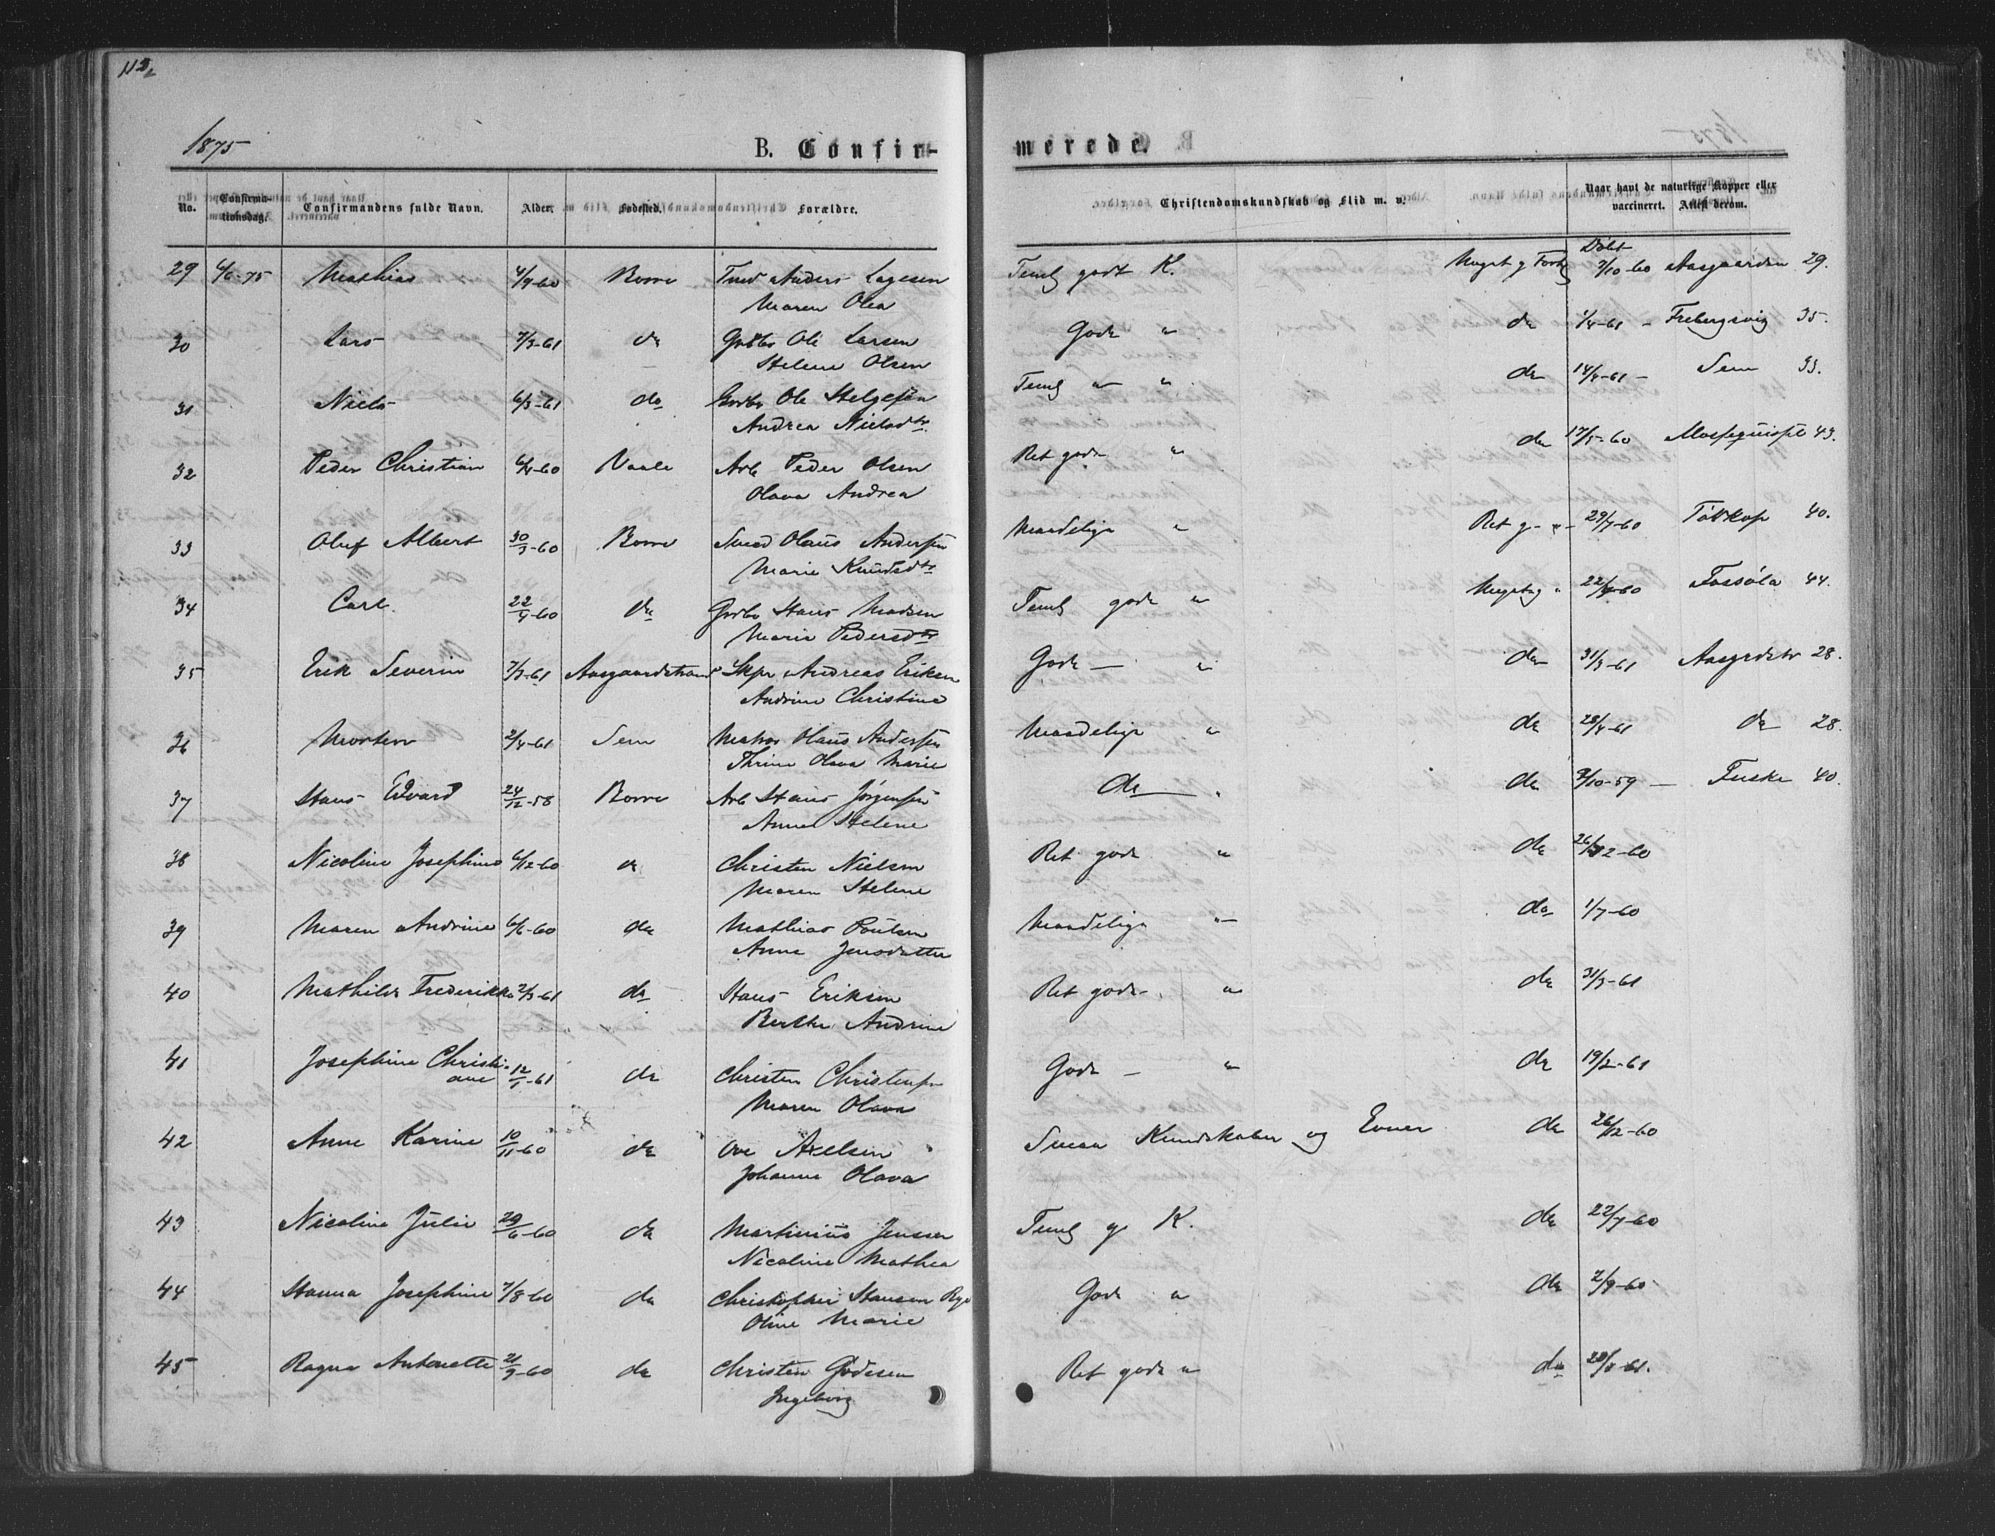 112.
1875
B. Confir-
merede.
No.
Confirma-
tionsdag.
Confirmandens fulde Navn.
Alder.
Fødested.
Forældre.
Christendomskundskab og Flid m. v.
Naar havt de naturlige Kopper eller
vaccineret. Attest derom.
29 4/6-75 Mathias 4/9-60 Borre Anders Lagesen
Maren Olea
Teml godt K. Meget g Døbt 7/10-60 Aasgaarden 29.
30 Lars 7/3-61 do Grdbr Ole Larsen
Helene Olsen
Gode " do 1/4-61 - Frebergsvig 35.
31 Niels 6/3-61 do Grdbr Ole Helgesen
Andrea Nielsdtr
Teml " " do 14/4-61 - Sem 33.
32 Peder Christian 6/4-60 Vaale Arb Peder Olsen
Olava Andrea
Ret gode " do 17/5-60 43.
33 Oluf Albert 30/3-60 Borre Smed Olaus Andersen
Marie Knudsdtr
Maadelige " Ret g- " - 29/7-60 40.
34 Carl 22/4-60 do Grdbr Hans Madsen
Marie Pedersdtr
Teml gode " Meget g " 22/4-60 44.
35 Erik Severin 7/3-61 Aasgaardstrand Skpr Andreas Eriksen
Andrine Christine
Gode - " do 31/3-61 Aasgrdstr 28.
36 Morten 2/4-61 Sem Matros Olaus Andersen
Thrine Olava Marie
Maadelige " do 28/4-61 do 28.
37 Hans Edvard 24/12-58 Borre Arb Hans Jørgensen
Anne Helene
do " do 2/10-59 - Fuske 40.
38 Nicoline Josephine 6/12-60 do Christen Nielsen
Maren Helene
Ret gode " do 26/12-60
39 Maren Andrine 6/6-60 do Mathias Poulsen
Anne Jensdatter
Maadelige " do 1/7-60
40 Mathilde Frederikke 2/3-61 do Hans Eriksen
Berthe Andrine
Ret gode - " do 31/3-61
41 Josephine Christi-
ane 12/1-61 do Christen Christensen
Maren Olava
Gode - " do 19/2-61
42 Anne Karine 10/11-60 do Ove Axelsen
Johanne Olava
Smaa Kundskaber og Evner do 26/12-60
43 Nicoline Julie 29/6-60 do Martinius Jensen
Nicoline Mathea
Teml g K. do 22/7-60
44 Hanna Josephine 7/8-60 do Christopher Hansen
Oline Marie
Gode " do 2/9-60
45 Ragna Antonette 21/9-60 do Christen Gødesen
Ingeborg
Ret gode " do